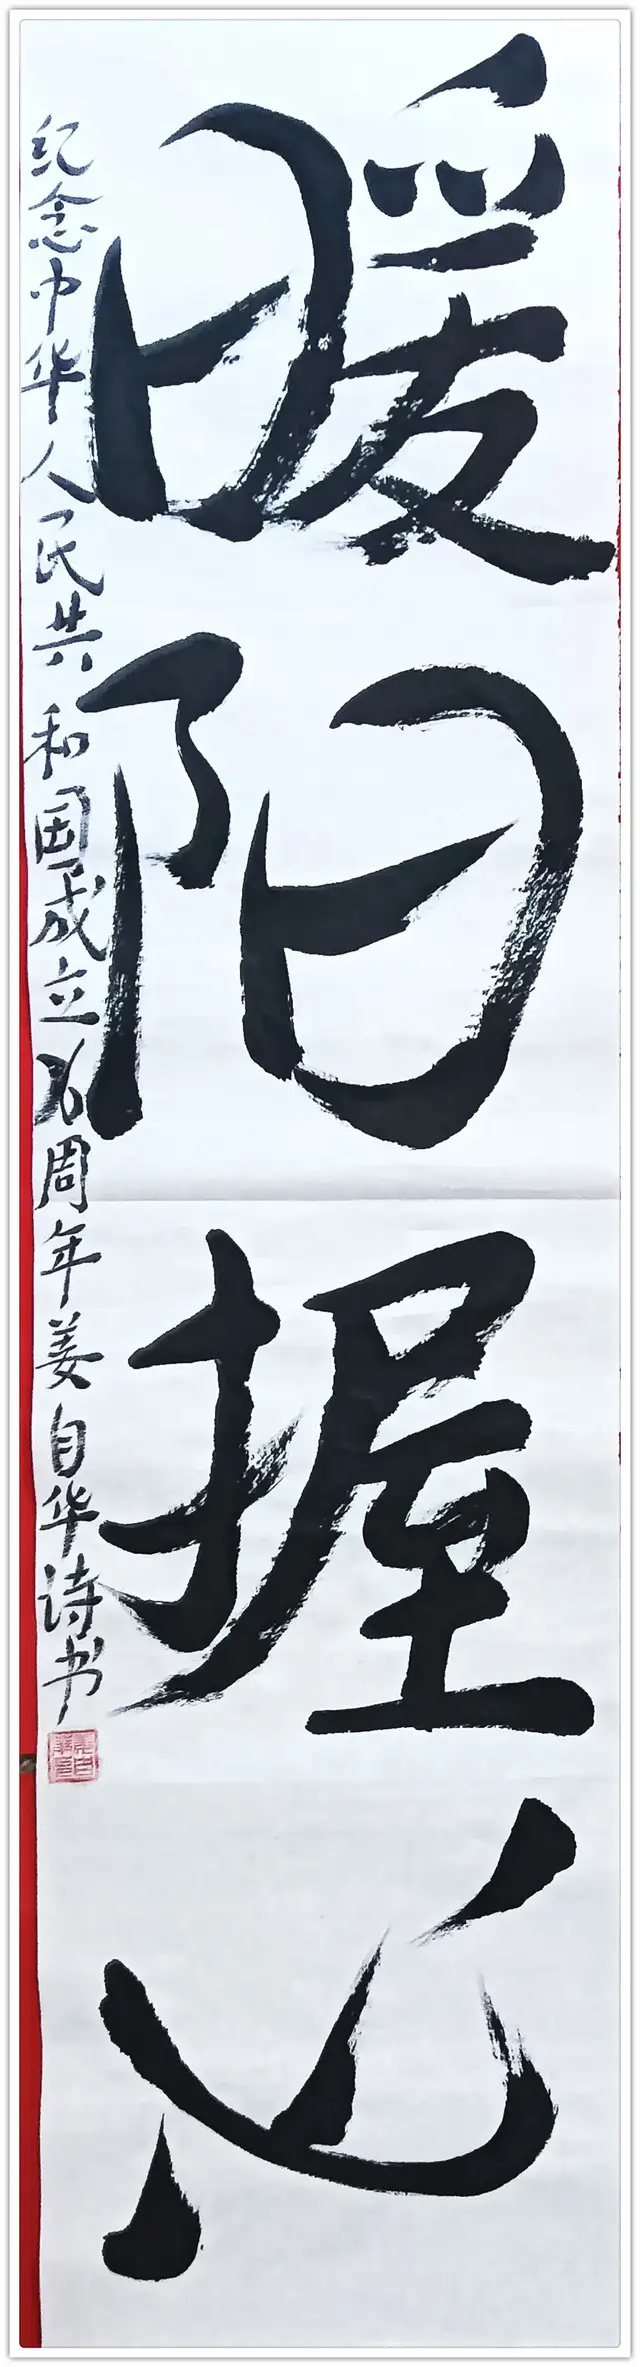 暖阳握心
纪念中华人民共和国成立76周年姜自华诗书